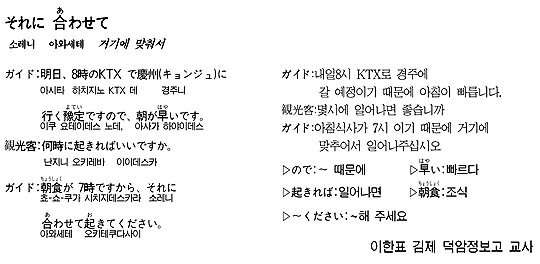 それに 合わせて
소레니 아와세테 거기에 맞춰서
ガイド:明日、8時のKTX で慶州(キョンジュ)に
아시타 하치지노 KTX 데 경주니
行く豫定ですので、朝が早いです。
이쿠 요테이데스 노데, 아사가 하야이데스
観光客:何時に起きればいいですか。
난지니 오키레바 이이데스카
ガイド:朝食が 7時ですから、それに
쵸-쇼-쿠가 시치지데스카라 소레니
合わせて起きてください。
아와세테 오키테쿠다사이
ガイド:내일8시 KTX로 경주에
갈 예정이기 때문에 아침이 빠릅니다.
観光客:몇시에 일어나면 좋습니까
ガイド:아침식사가 7시 이기 때문에 거기에
맞추어서 일어나주십시오
▷ので:~ 때문에 ▷早い:빠르다
▷起きれば:일어나면 ▷朝食:조식
▷~ください:~해 주세요
이한표 김제 덕암정보고 교사